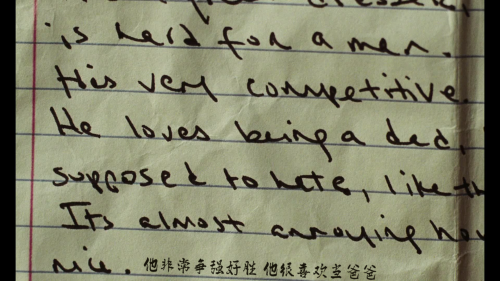 is hard for a man.
His very competitive.
He loves being a dad,
supposed to hate, like th
Its almost annoying how
nice.
他非常争强好胜 他很喜欢当爸爸